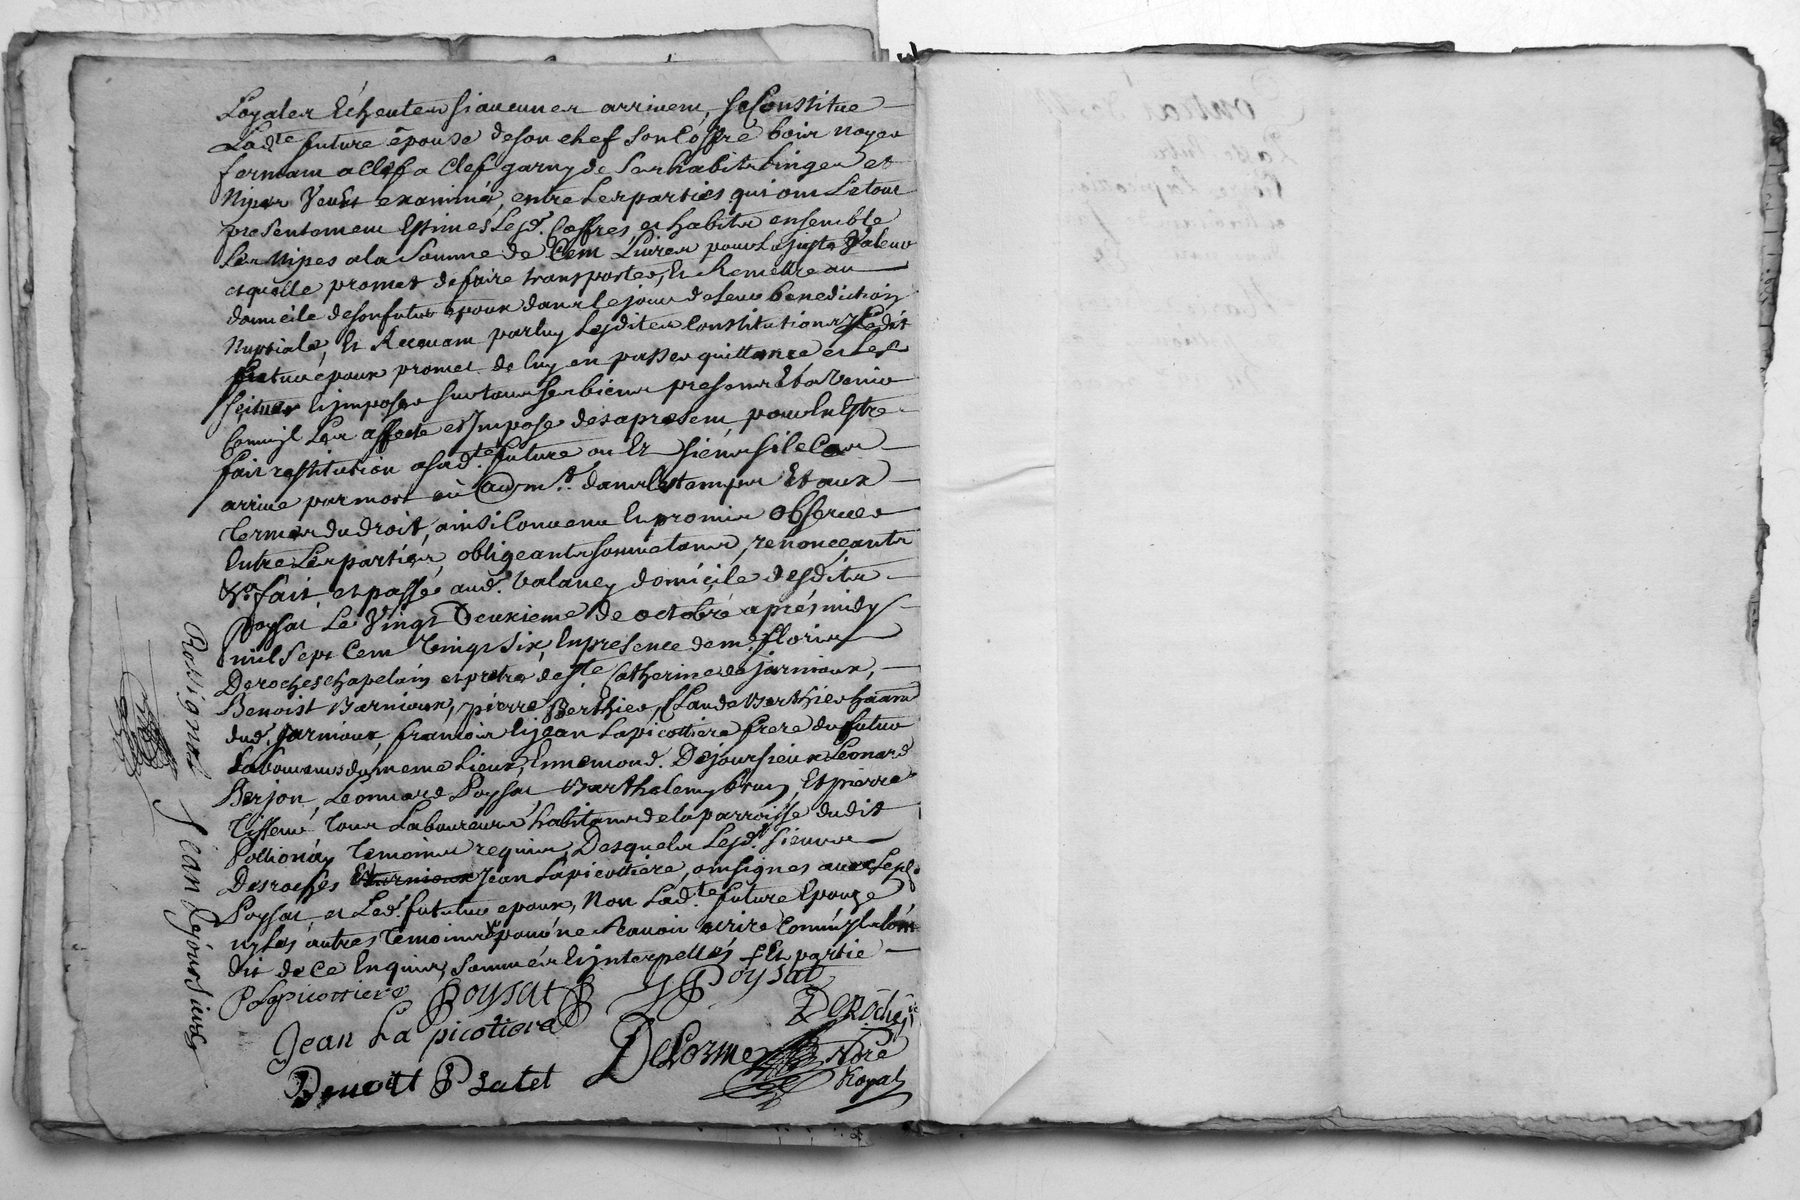 Loyales Echeutes si aucunes arrivent, se Constitue
Lad.te future épouse de son chef son Coffre bois noyer
fermant a Clef a Clef garny de ses habits Linges et
Nipes Veu Et examiné, entre Les parties qui ont Letout
presentement Estimés Lesd. Coffres et habits ensemble
Les Nipes ala Somme de Cent Livres pour La juste Valeur
et quelle promet de faire transporter, Et Remettre au
domicile de son futur epoux dans le jour de Leur benediction
Nuptiale, Et Recevant par luy Lesdites Constitutions Ledit
futur époux promet de luy en passer quittance et Les
Et imposer sur tous ses biens presents Et a Venir
Comm'jl Les affecte et Jmpose des apresent, pour En Estre
fait restitution a sad.te future ou Et Siens si le Cas
arrive par mort ou au dans les temps Et aux
termes du Droit, ainsi Convenu Et promis Observer
Entre Les parties, obligeants soumettants, renonceants
&a fait et passé aud. Valancy domicile desdits
Poysat Le Vingt Deuxieme de octobre aprés midy
mil Sept Cent Vingt Six, En presence de m.e floris
Deroches chapelain et pretre de S.te Catherine de jarnioux,
Benoist Barnioux, pierre Berthier, Claude Berthier
dud. jarnioux, francois Et jean Lapicottiere frere du futur
Laboureurs du meme Lieux, Ennemond Dejoursieux Leonard
Berjon, Leonnard Poysat Barthelemy brun, Et pierre
Tisseur tous Laboureurs habitants de la parroisse dudit
Pollionay temoins requis, Desquels Lesd. Sieurs
Desroches Jean Lapicottiere, ont signes avec Lesd.
Poysat et Led. fututur epoux, Non Lad.te future Epouze
ny Les autres temoins pour ne scavoir ecrire Comm'jls ont
dit de ce Enquis, Sommés Et jnterpellés Et partie
P Lapicottiere Poysat Poysat
Jean La picotiere Deroches
Benoitt Platet Delorme Nore
Royal
Rossignol Jean Dejoursieux